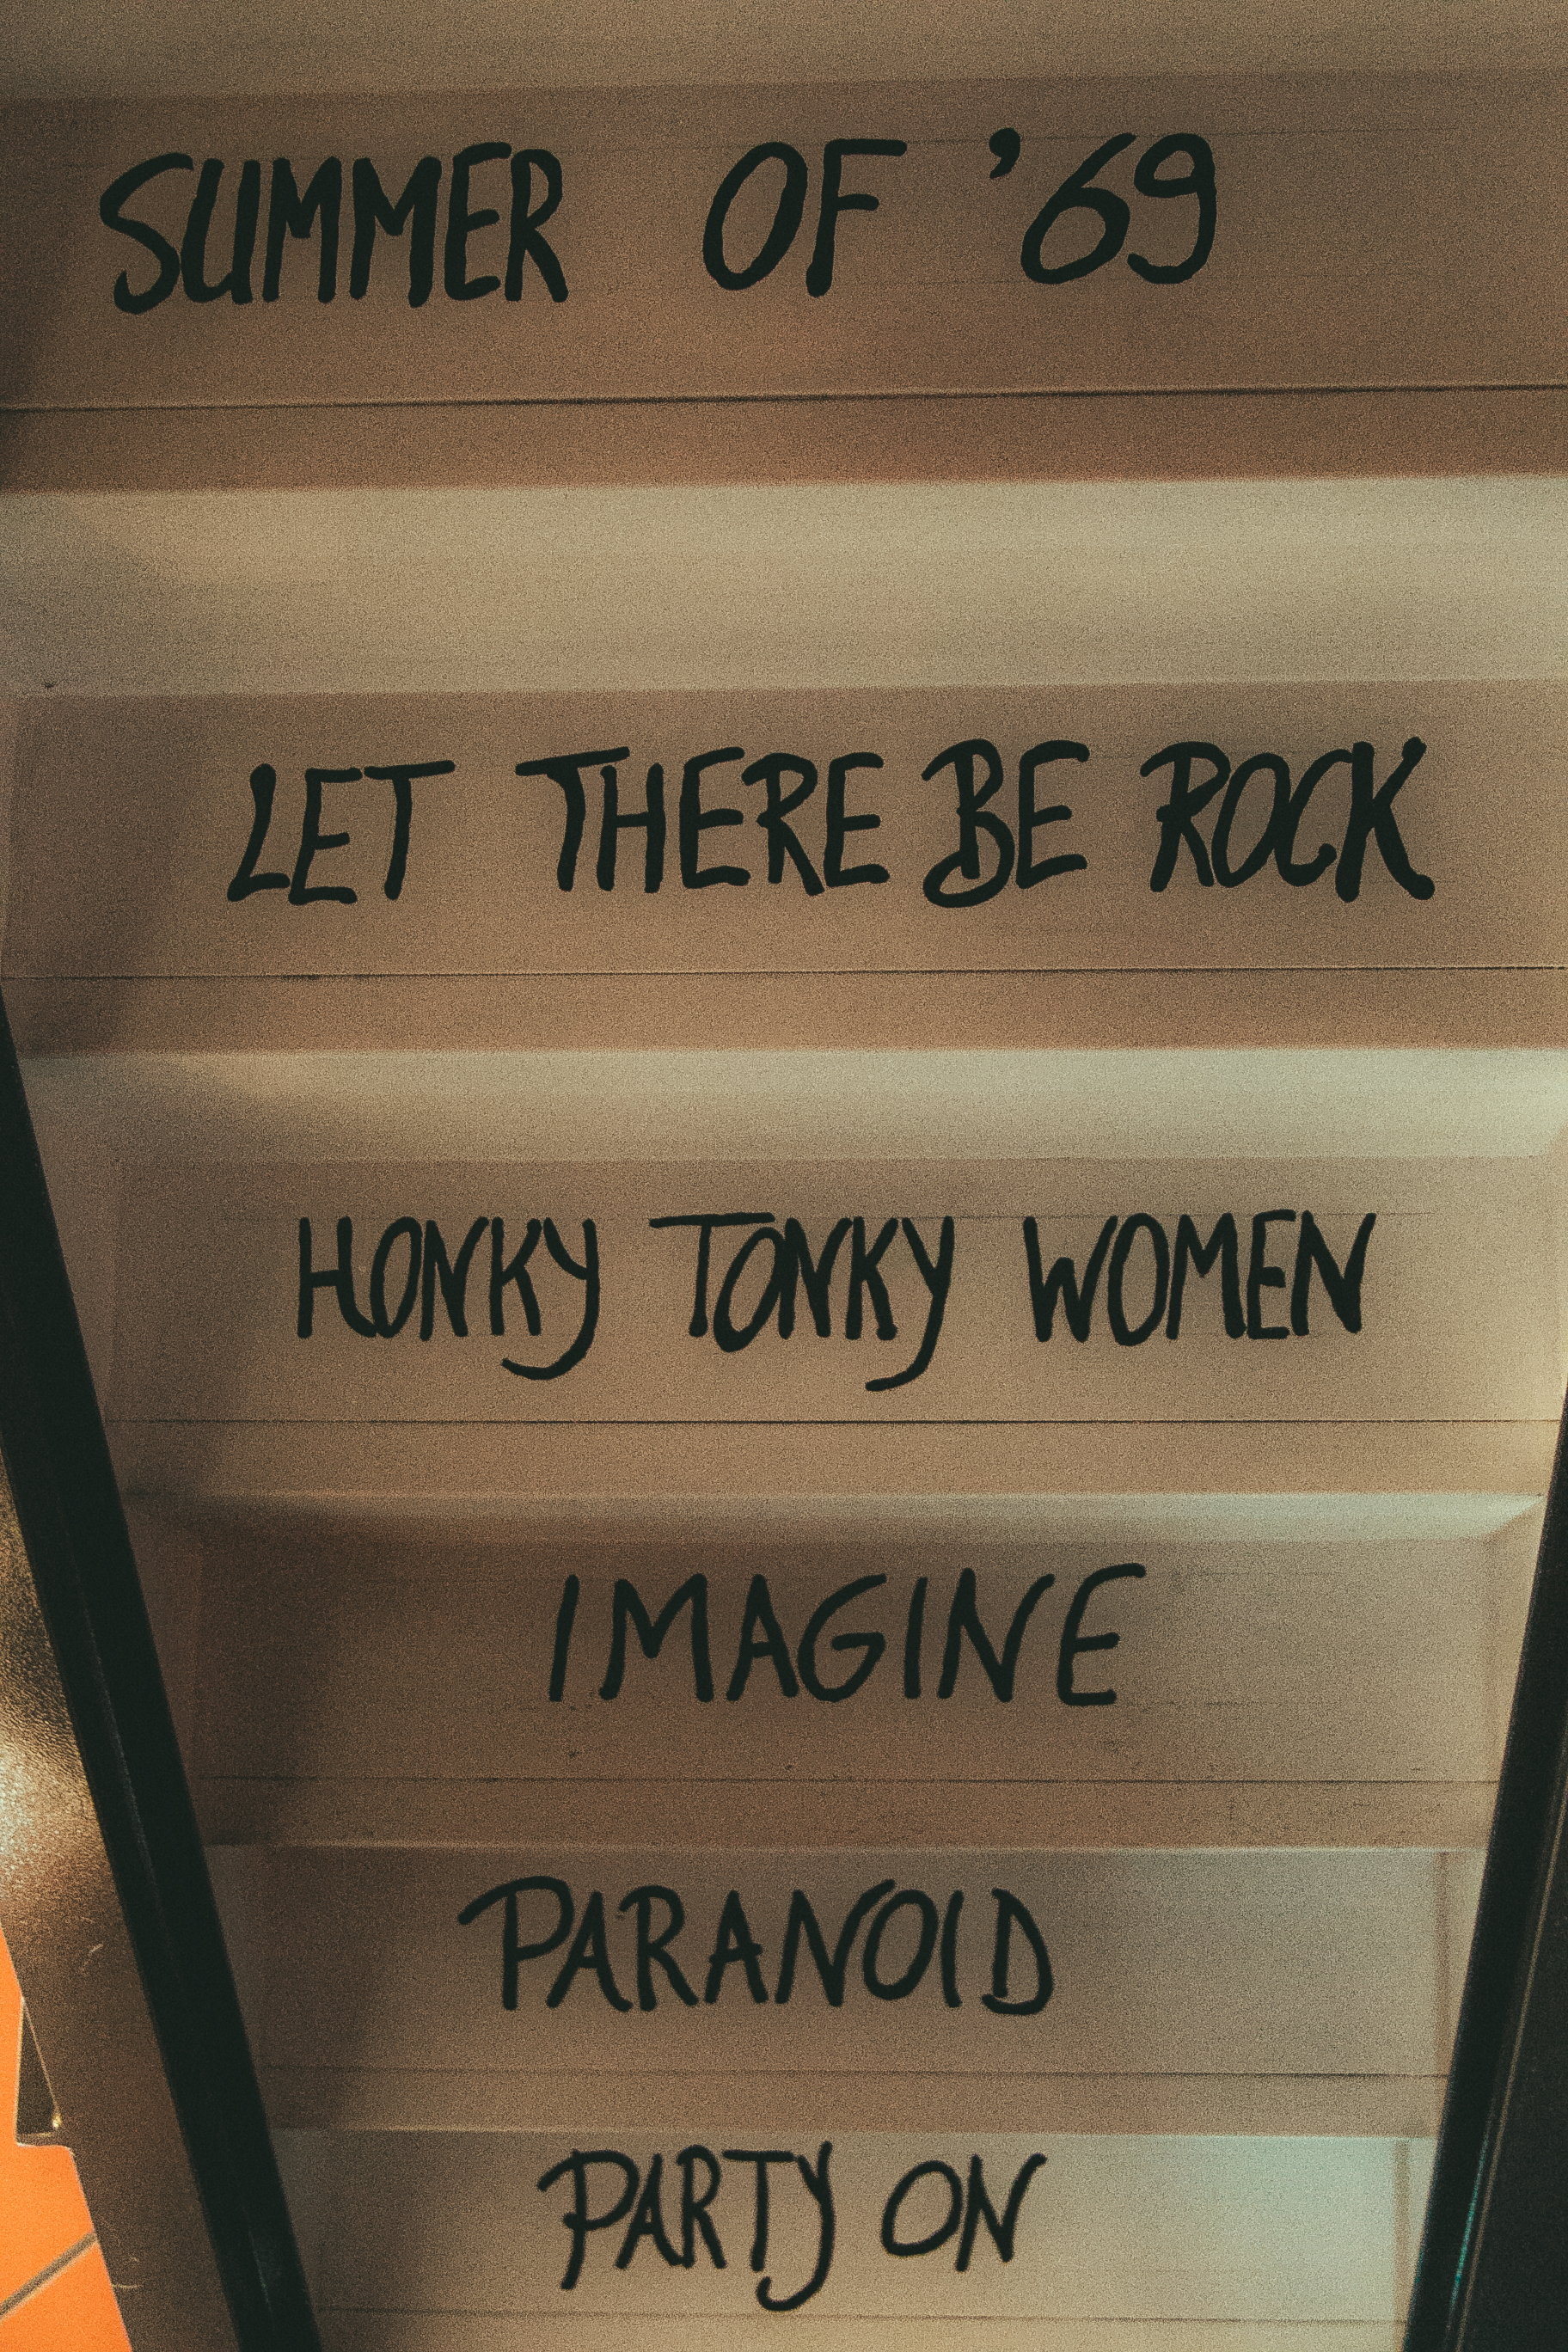 SUMMER OF '69
LET THERE BE ROCK
HONKY TONKY WOMEN
IMAGINE
PARANOID
PARTY ON